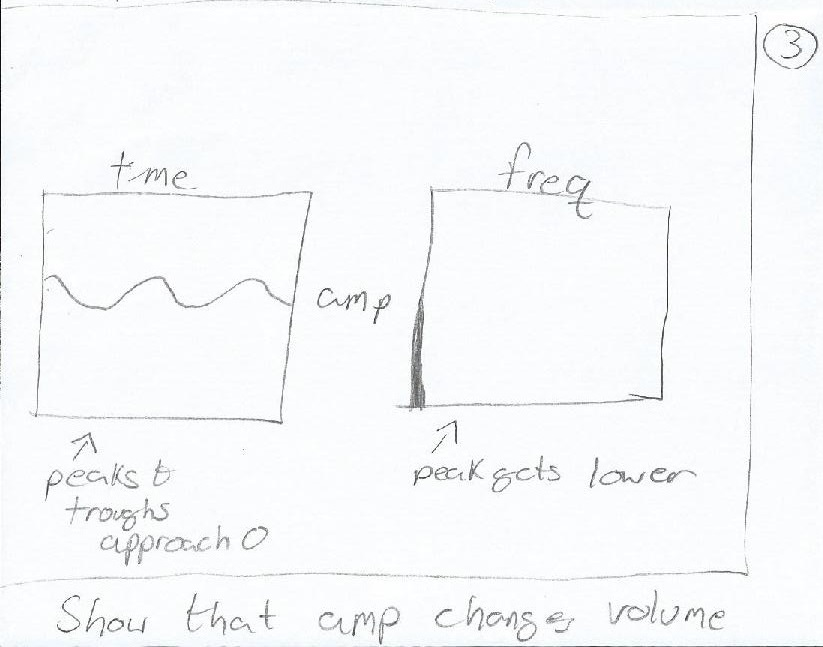 3
time
freq
amp
peaks &
troughs
approach 0
peak gets lower
Show that amp changes volume